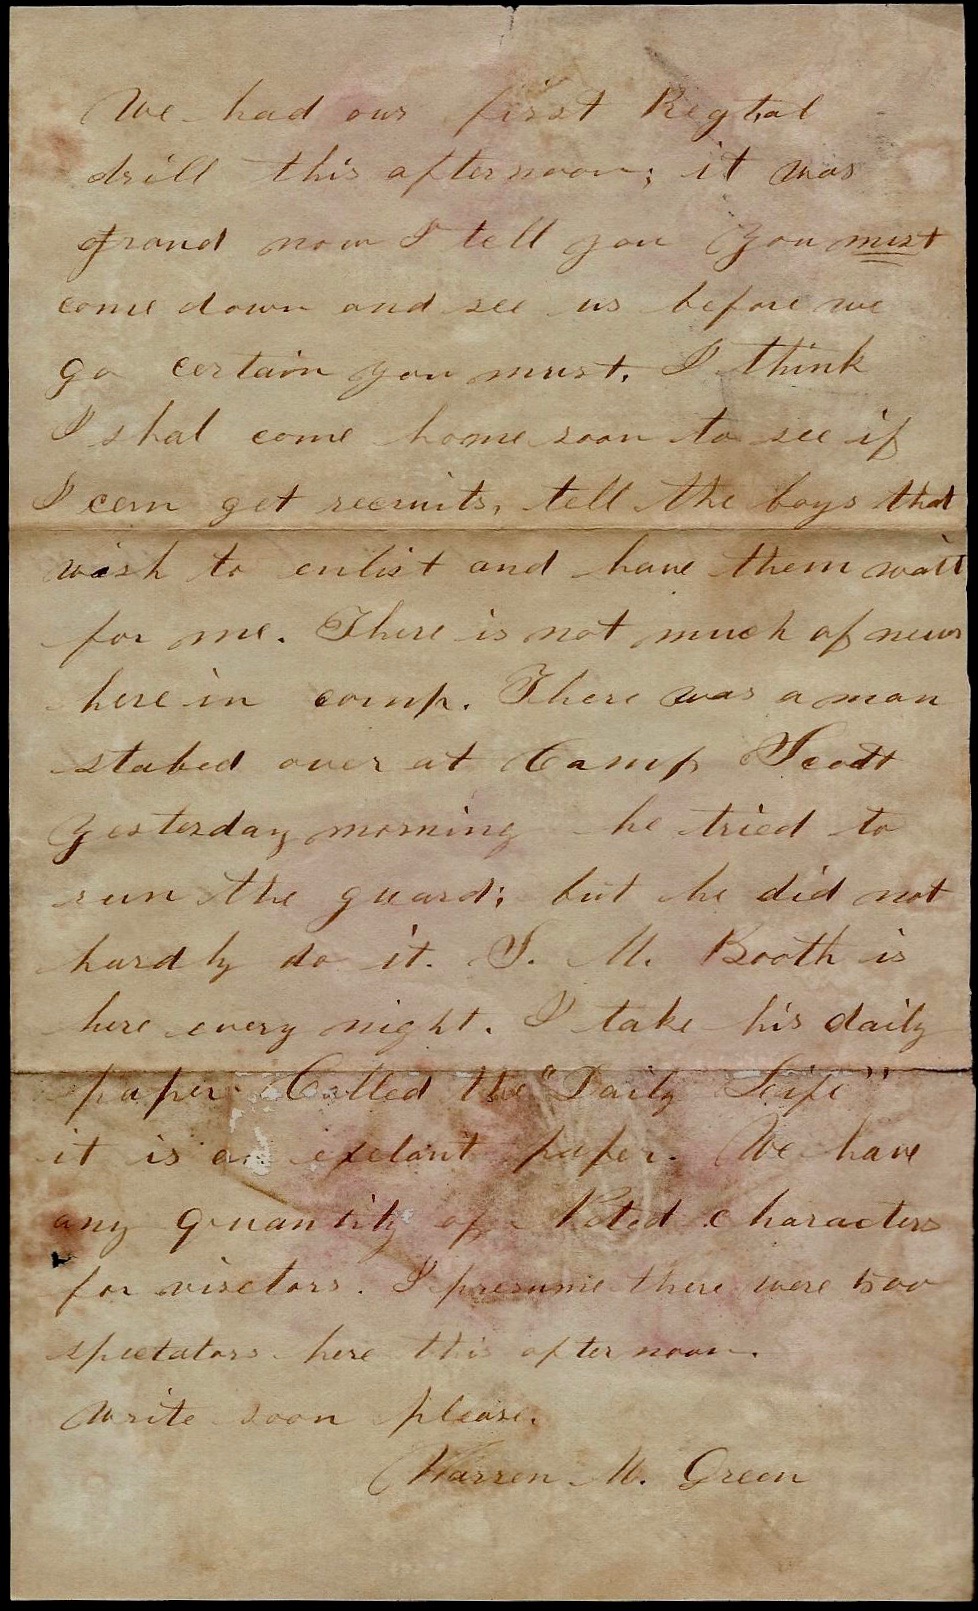 We had our first Regtal
drill this afternoon; it was
grand now I tell you You must
come down and see us before we
go certain you must. I think
I shal come home soon to see if
I can get recruits, tell the boys that
wish to enlist and have them wait
for me. There is not much of news
here in camp. There was a man
stabed over at Camp Scott
yesterday morning he tried to
run the guard; but he did not
hardly do it. S. M. Booth is
here every night. I take his daily
paper Called the "Daily Life"
it is an exelant paper. We have
any quantity of Noted characters
for visetors. I presume there were 500
spectators here this afternoon.
Write soon please.
Warren M. Green